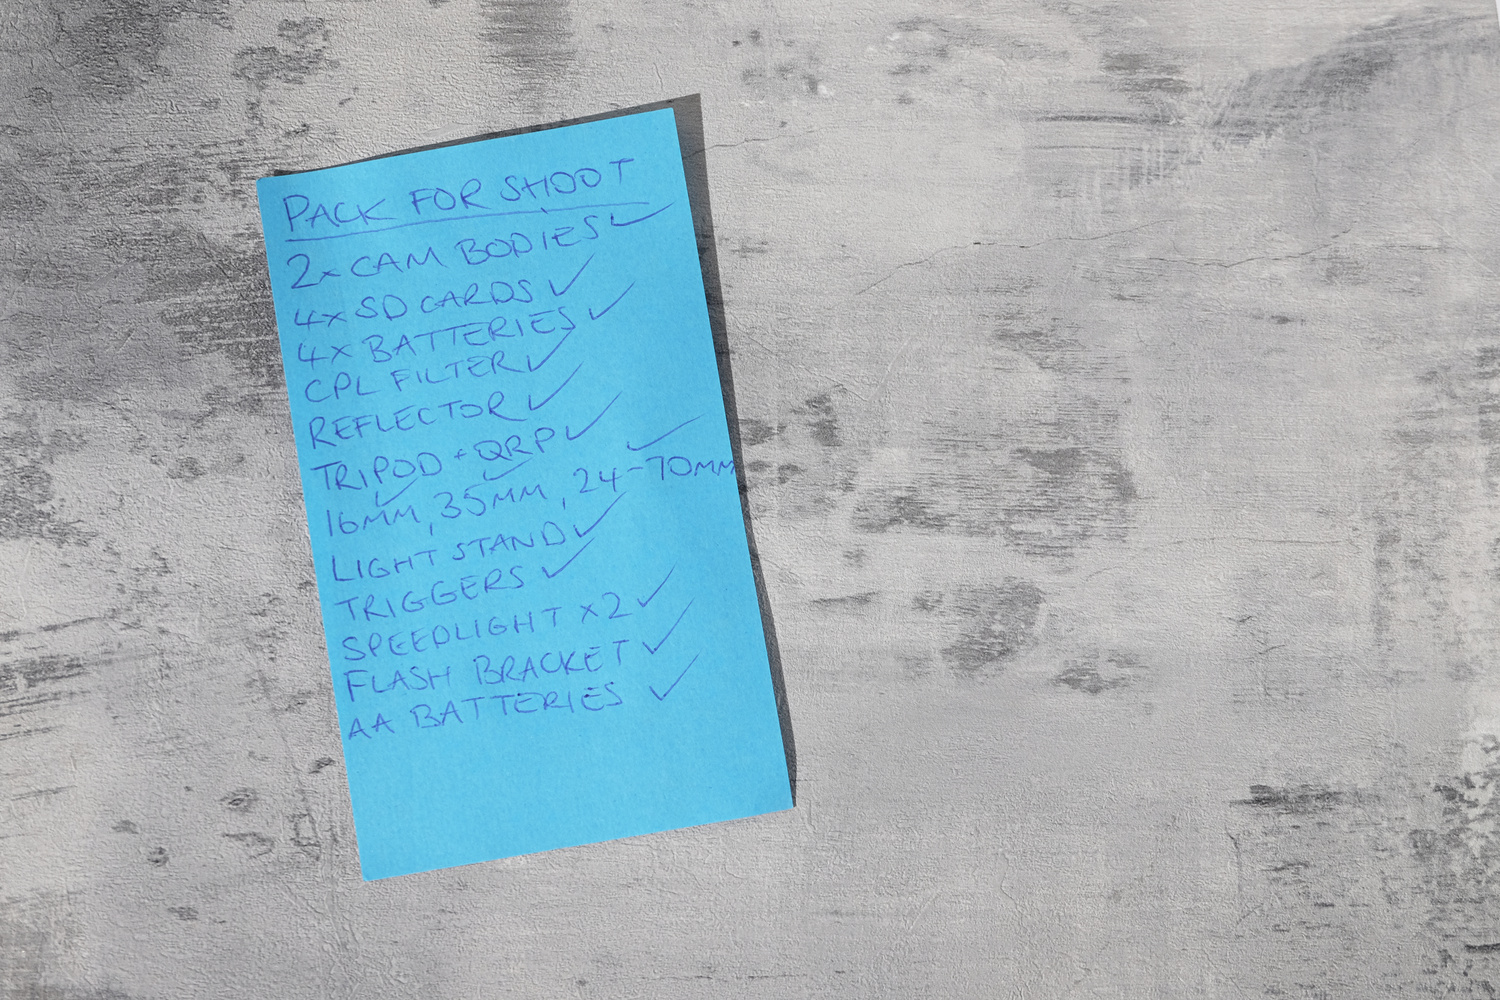 PACK FOR SHOOT
2x CAM BODIES ✓
4x SD CARDS ✓
4x BATTERIES ✓
CPL FILTER ✓
REFLECTOR ✓
TRIPOD + QRP ✓
16MM ✓, 35MM ✓, 24-70MM ✓
LIGHT STAND ✓
TRIGGERS ✓
SPEEDLIGHT x2 ✓
FLASH BRACKET ✓
AA BATTERIES ✓